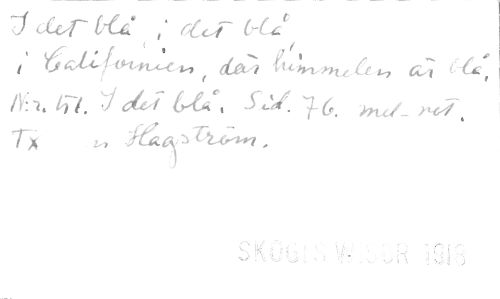 I det blå, i det blå,
i Californien, där himmelen är blå.
N:r 151. I det blå. Sid. 76. mel-
Tx n Hagström.
SKOGIS WISOR 1918